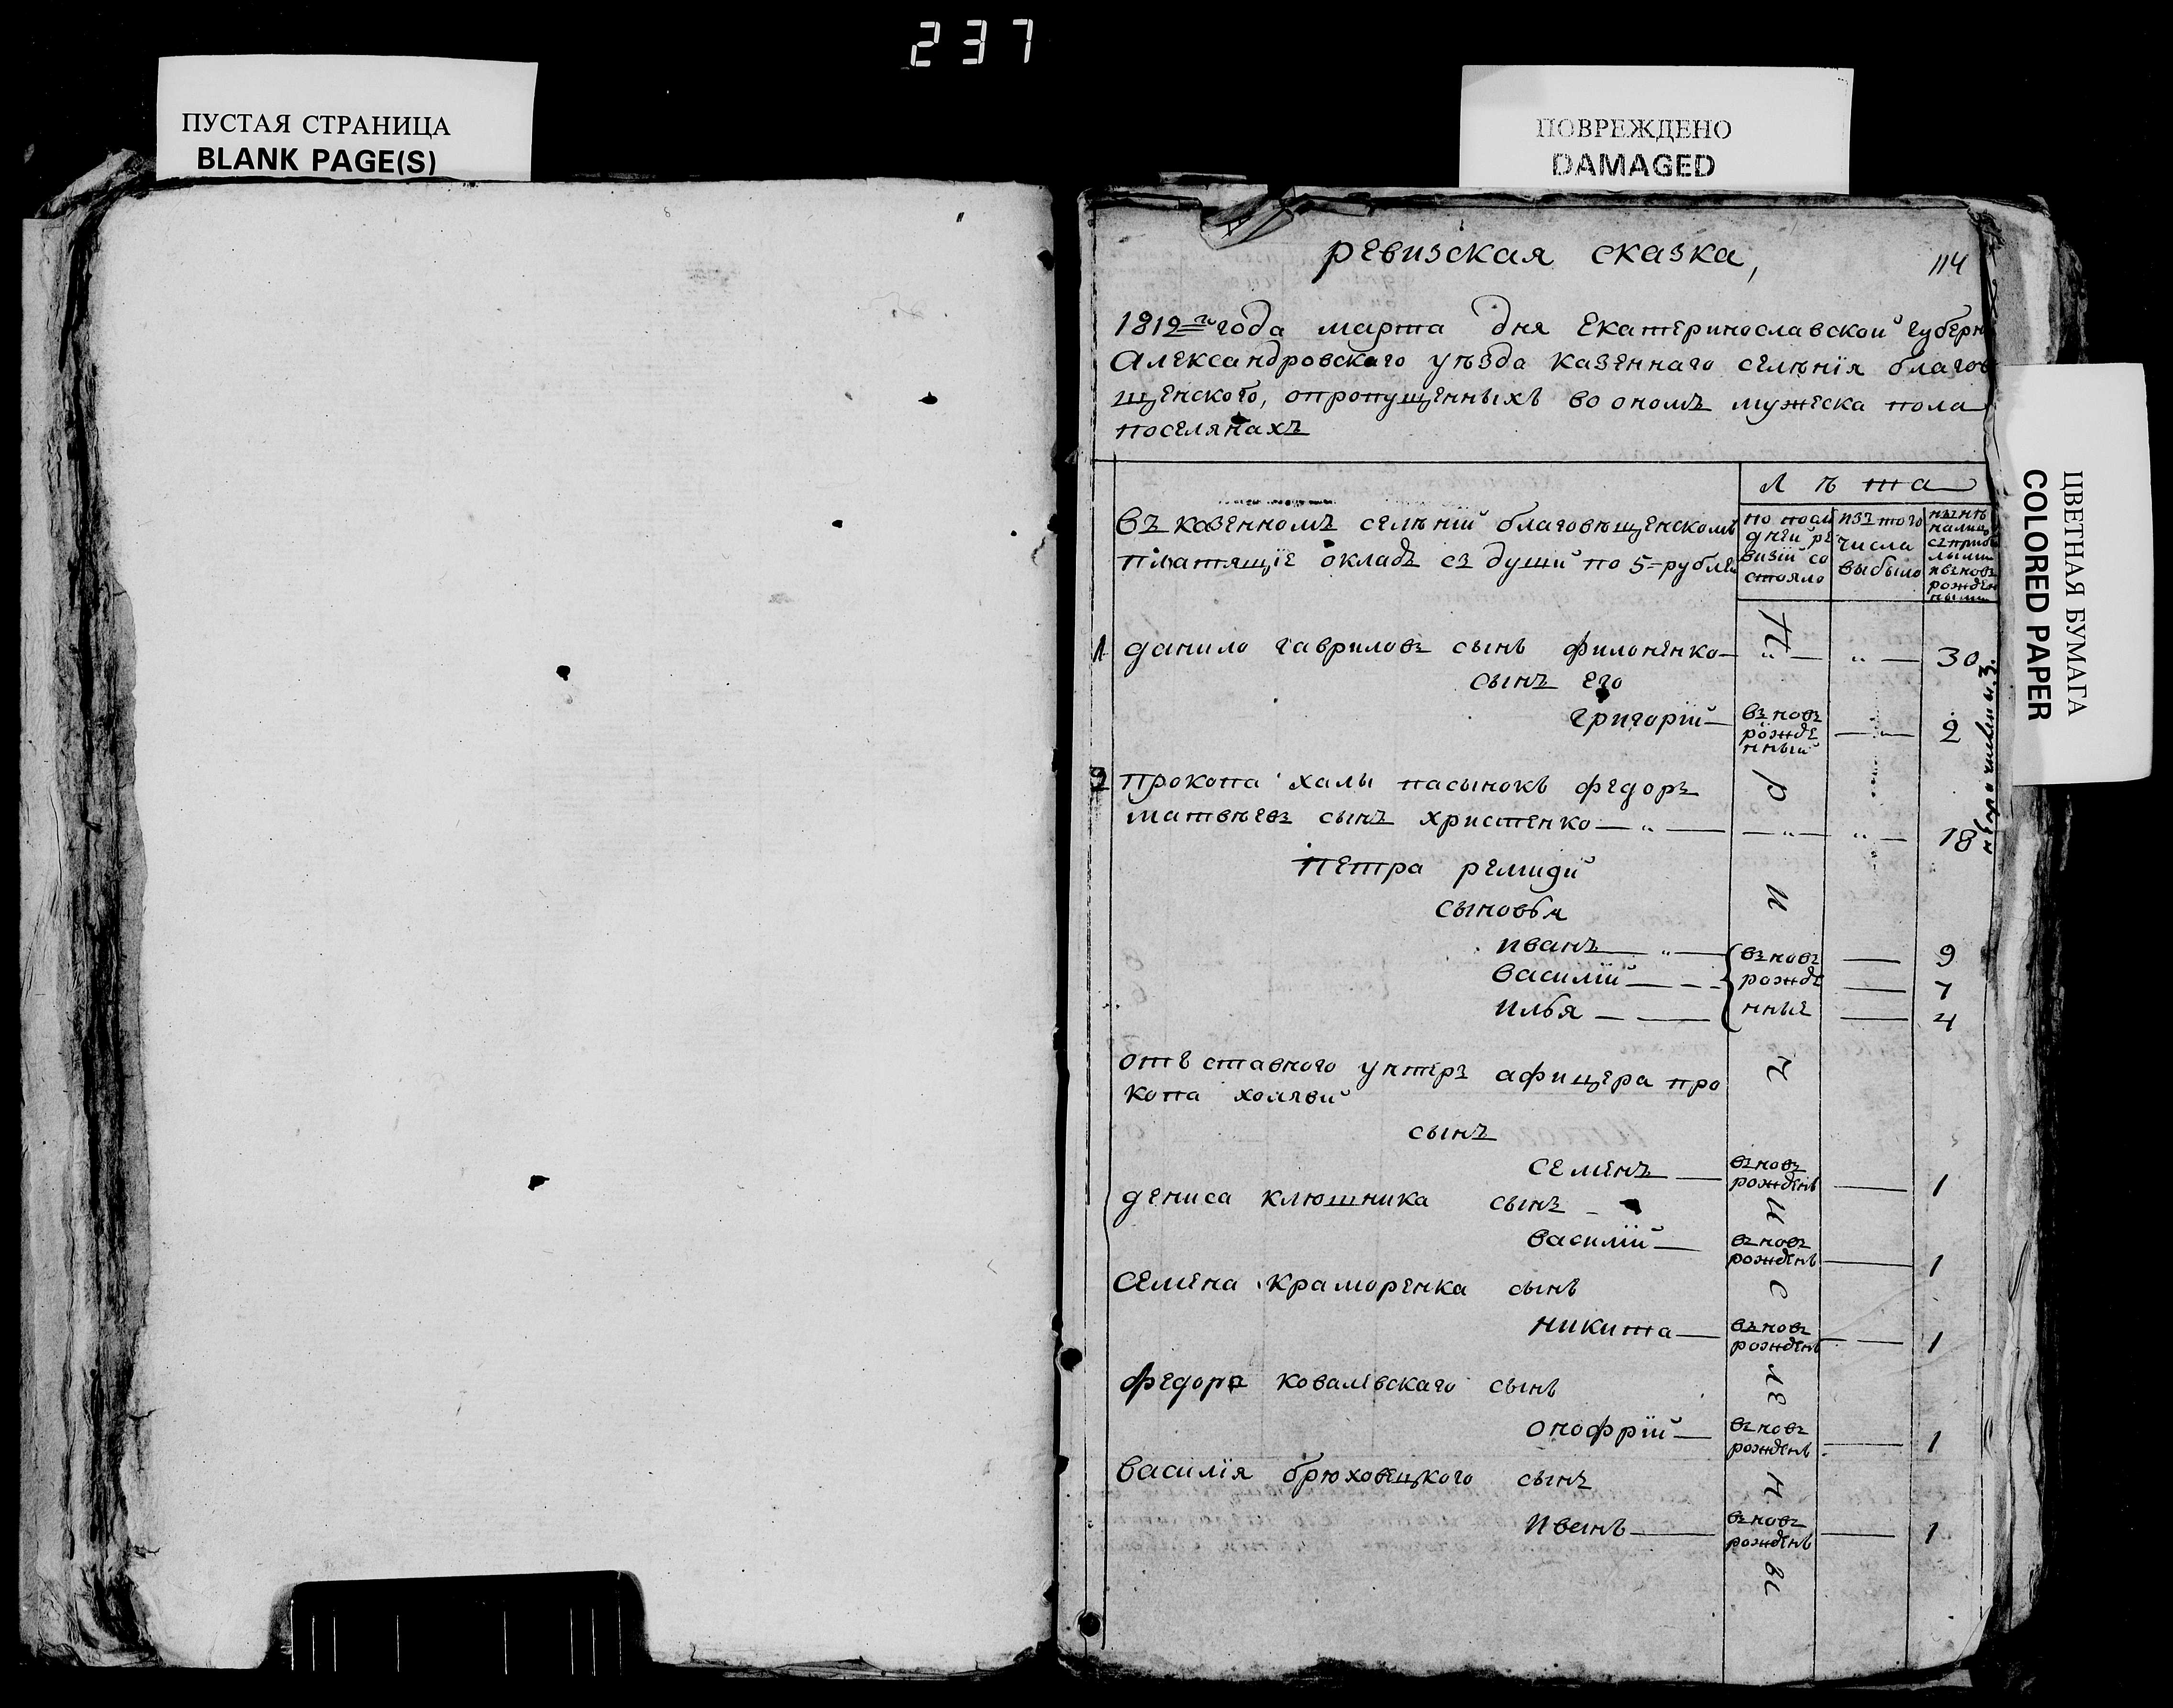 237
ПУСТАЯ СТРАНИЦА
BLANK PAGE(S)
ПОВРЕЖДЕНО
DAMAGED
ЦВЕТНАЯ БУМАГА
COLORED PAPER
ревизская сказка,
114
1812 го года марта дня Екатеринославской губерн
Александровскаго уѣзда казеннаго селѣнїя благов
щенского, опропущенныхъ во ономъ мужеска пола
поселянахъ
Лѣта
въ казенномъ селѣнїи благовѣщенскомъ
платящїе окладъ съ души по 5-рублей
по посл
дней ре
визїи со
стояло
изъ того
числа
выбыло
нынѣ
налицо
съ прибы
лыми
ивновъ
рожден
ными
1 данило гавриловъ сынъ филоненко — " — " — 30
сынъ его
григорїй — вновъ рожде нный — " — 2
2 прокопа халы пасынокъ федоръ
матвѣевъ сынъ христенко — " — — " — " — 18
петра ремиди
сыновья
иванъ — " — 9
василїй — — 7
илья — — 4
вновъ
рожде
нные
отъ ставного унтеръ афицера про
копа холяви
сынъ
семенъ — вновъ рожденъ — 1
дениса клюшника сынъ —
василїй — вновъ рожденъ — 1
семена краморенка сынъ
никита — вновъ рожденъ — 1
федора ковалевскаго сынъ
онофрїй — вновъ рожденъ — 1
василїя брюховецкого сынъ
иванъ — вновъ рожденъ — 1